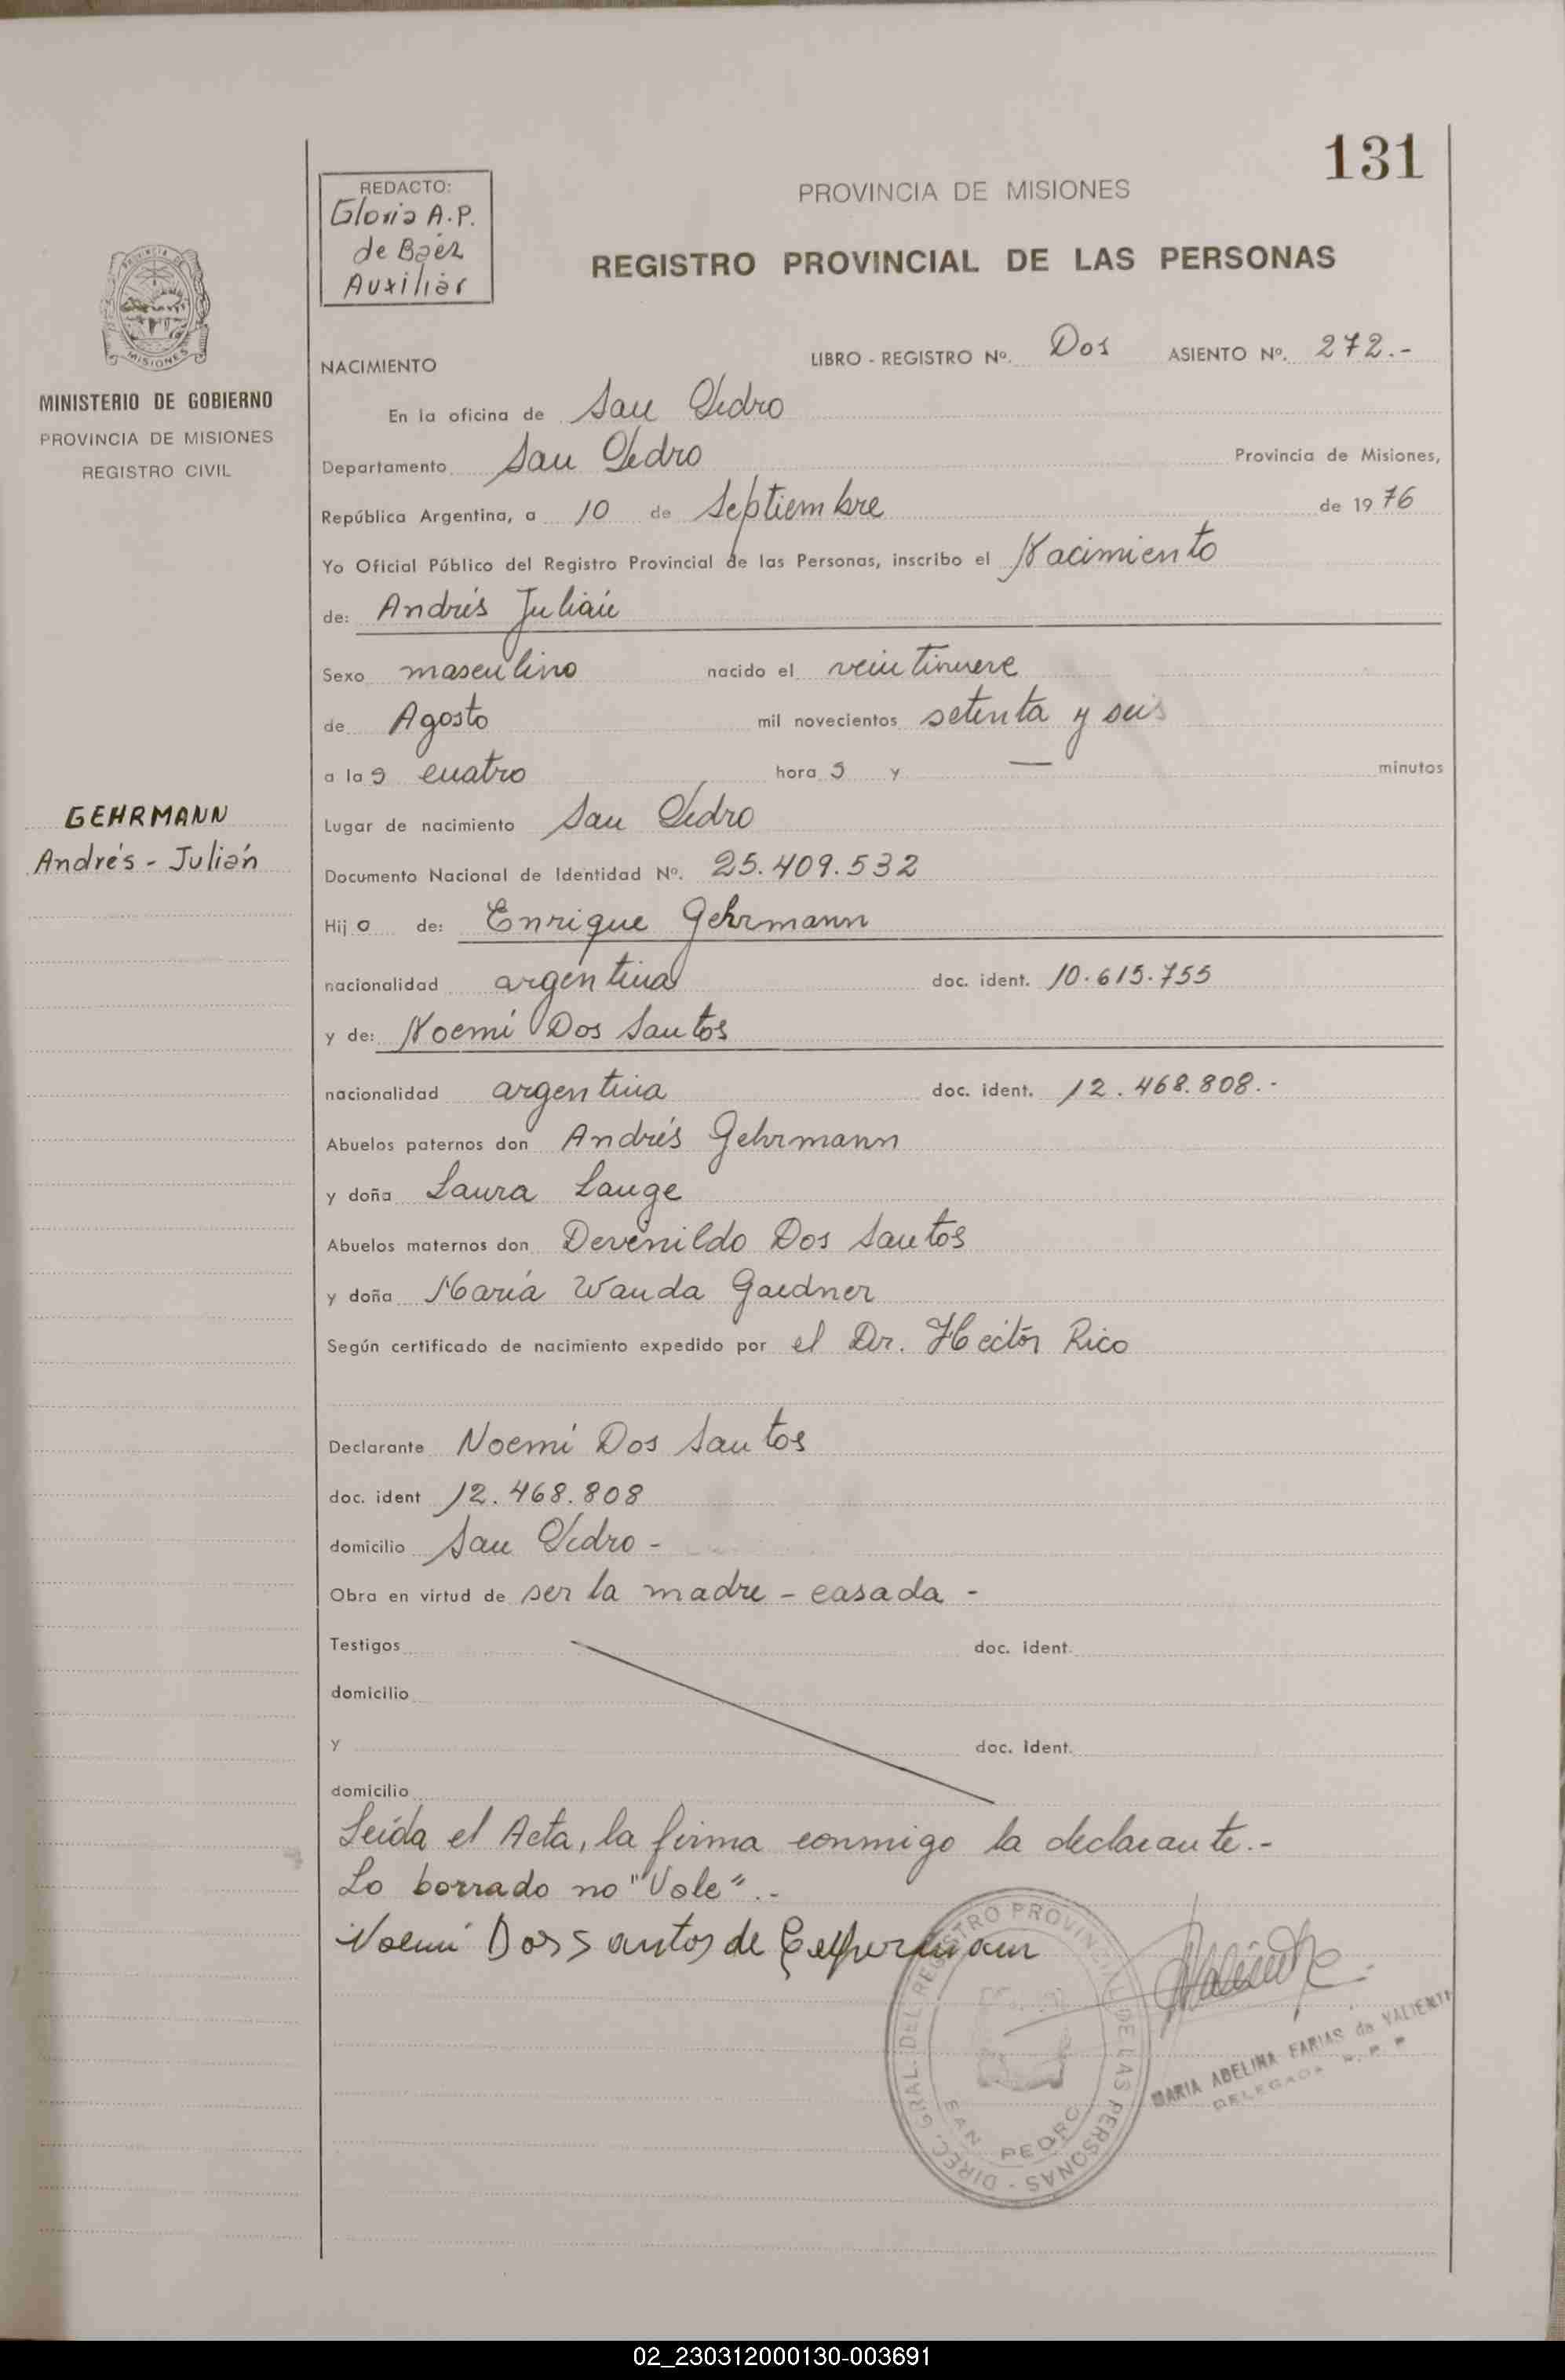 131
REDACTO:
Gloria A.P.
de Baéz
Auxiliar
PROVINCIA DE MISIONES
REGISTRO PROVINCIAL DE LAS PERSONAS
MISIONES
MINISTERIO DE GOBIERNO
PROVINCIA DE MISIONES
REGISTRO CIVIL
NACIMIENTO LIBRO - REGISTRO Nº. Dos ASIENTO Nº. 272.-
En la oficina de San Pedro
Departamento San Pedro Provincia de Misiones,
República Argentina, a 10 de Septiembre de 1976
Yo Oficial Público del Registro Provincial de las Personas, inscribo el Nacimiento
de: Andrés Julián
Sexo masculino nacido el veintinueve
de Agosto mil novecientos setenta y seis
a las cuatro horas y — minutos
GEHRMANN
Andrés - Julián
Lugar de nacimiento San Pedro
Documento Nacional de Identidad Nº. 25.409.532
Hijo de: Enrique Gehrmann
nacionalidad argentina doc. ident. 10.615.755
y de: Noemí Dos Santos
nacionalidad argentina doc. ident. 12.468.808.-
Abuelos paternos don Andrés Gehrmann
y doña Laura Lange
Abuelos maternos don Devenildo Dos Santos
y doña María Wanda Gaedner
Según certificado de nacimiento expedido por el Dr. Hector Rico
Declarante Noemí Dos Santos
doc. ident 12.468.808
domicilio San Pedro -
Obra en virtud de ser la madre - casada -
Testigos doc. ident.
domicilio
y doc. ident.
domicilio
Leída el Acta, la firma conmigo la declarante.-
Lo borrado no "Vale".-
Noemi Dos Santos de
DIREC. GRAL. DEL REGISTRO PROVINCIAL DE LAS PERSONAS -
SAN PEDRO
MARIA ABELINA FARIAS de VALIENTE
DELEGADA R. P. P
02_230312000130-003691